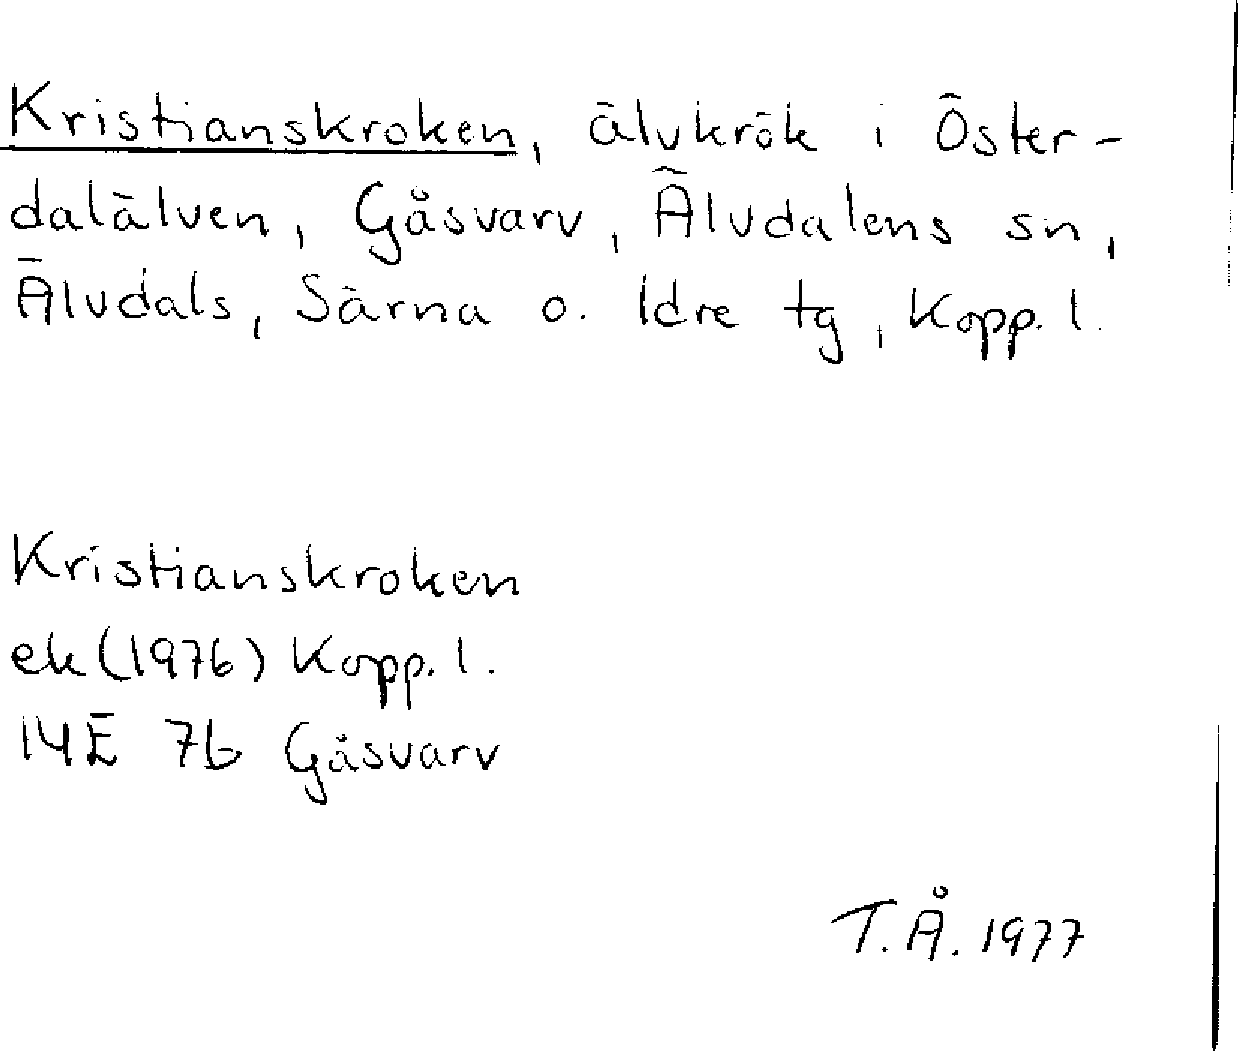 Kristianskroken, älvkrök i Öster-
dalälven, Gåsvarv, Älvdalens sn,
Älvdals, Särna o. Idre tg, Kopp. l.
Kristianskroken
ek(1976) Kopp. l.
14E 7b Gåsvarv
T.Å. 1977